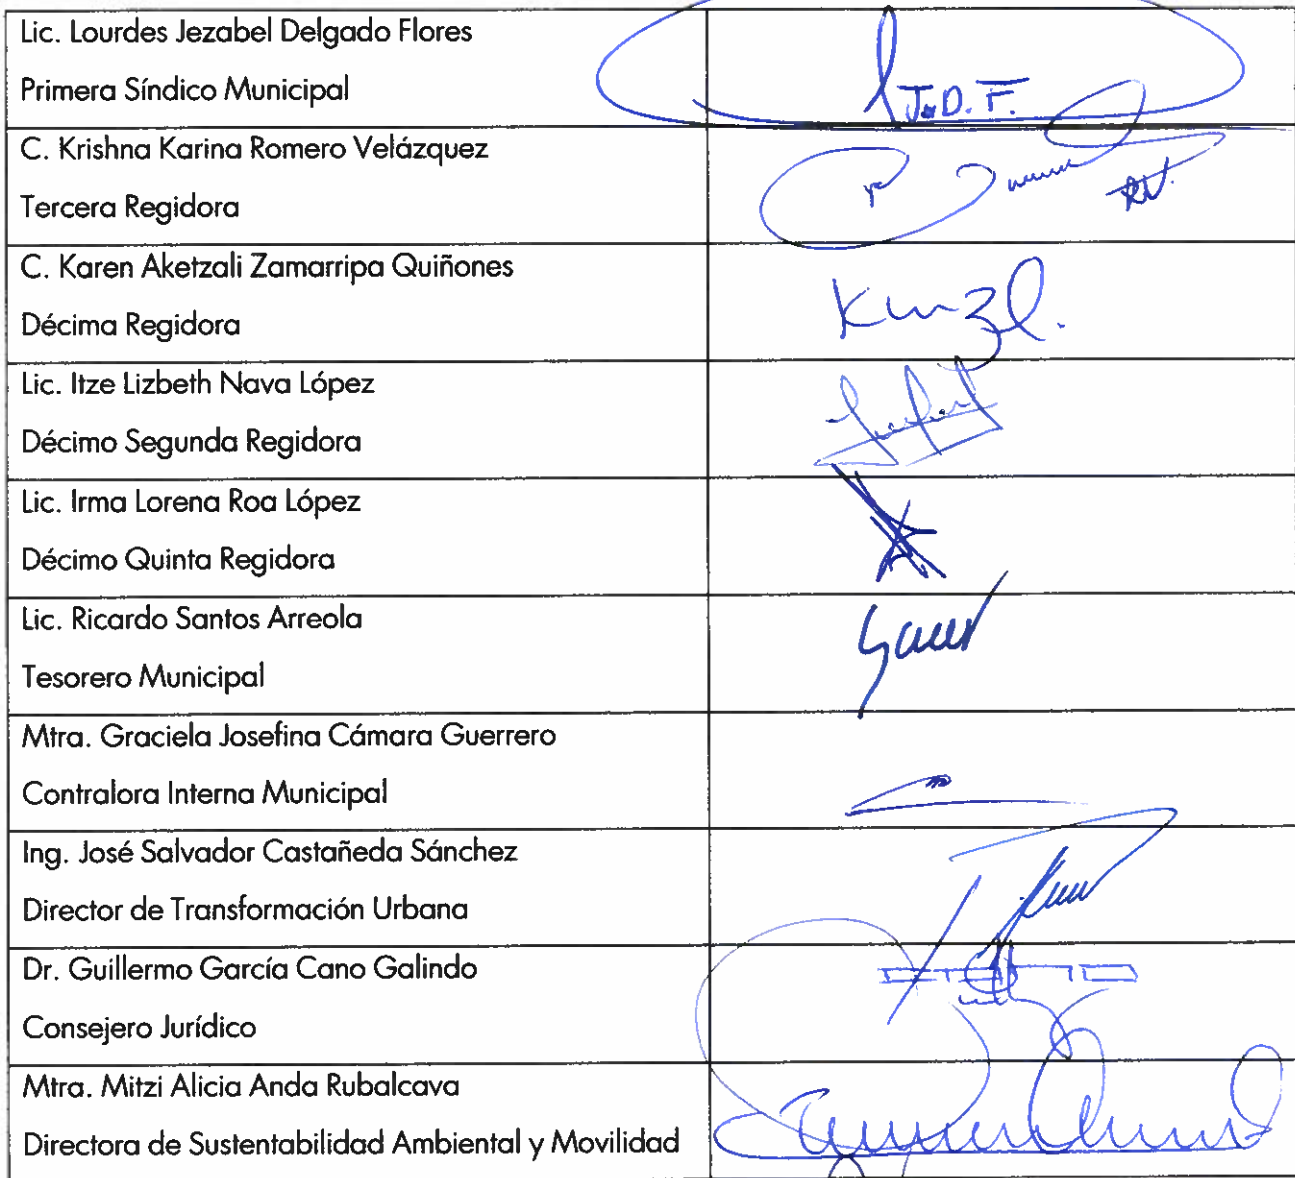 Lic. Lourdes Jezabel Delgado Flores
Primera Síndico Municipal
J.D.F.
C. Krishna Karina Romero Velázquez
Tercera Regidora
C. Karen Aketzali Zamarripa Quiñones
Décima Regidora
Lic. Itze Lizbeth Nava López
Décimo Segunda Regidora
Lic. Irma Lorena Roa López
Décimo Quinta Regidora
Lic. Ricardo Santos Arreola
Tesorero Municipal
Mtra. Graciela Josefina Cámara Guerrero
Contralora Interna Municipal
Ing. José Salvador Castañeda Sánchez
Director de Transformación Urbana
Dr. Guillermo García Cano Galindo
Consejero Jurídico
Mtra. Mitzi Alicia Anda Rubalcava
Directora de Sustentabilidad Ambiental y Movilidad